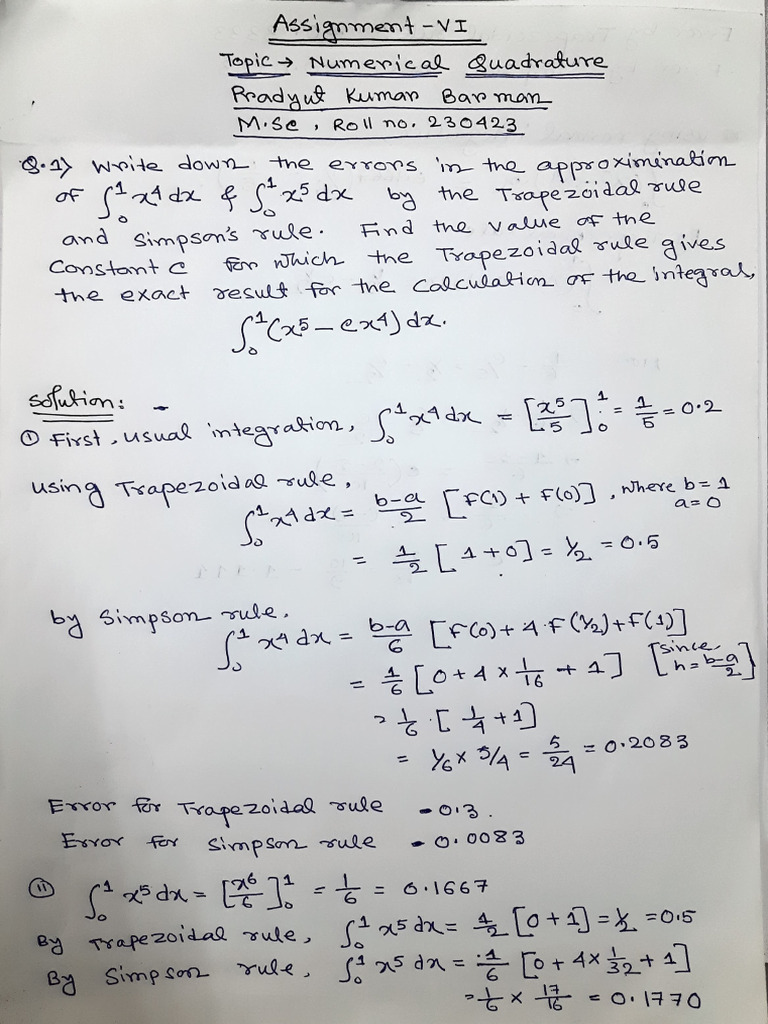 Assignment - VI
Topic → Numerical Quadrature
Pradyut Kumar Barman
M.Sc, Roll no. 230423
Q.1) Write down the errors in the approximination
of ∫₀¹ x⁴ dx & ∫₀¹ x⁵ dx by the Trapezoidal rule
and Simpson's rule. Find the value of the
Constant c for which the Trapezoidal rule gives
the exact result for the calculation of the integral,
∫₀¹ (x⁵ - cx⁴) dx.
Solution: -
① First, usual integration, ∫₀¹ x⁴ dx = [x⁵/5]₀¹ = 1/5 = 0.2
using Trapezoidal rule,
∫₀¹ x⁴ dx = b-a/2 [f(1) + f(0)], where b = 1
a = 0
= 1/2 [1+0] = 1/2 = 0.5
by Simpson rule.
∫₀¹ x⁴ dx = b-a/6 [f(0) + 4.f(1/2) + f(1)]
= 1/6 [0 + 4 × 1/16 + 1] [since, h = b-a/2]
= 1/6 . [1/4 + 1]
= 1/6 × 5/4 = 5/24 = 0.2083
Error for Trapezoidal rule -0.3.
Error for Simpson rule -0.0083
ⓘⓘ ∫₀¹ x⁵ dx = [x⁶/6]₀¹ = 1/6 = 0.1667
By Trapezoidal rule, ∫₀¹ x⁵ dx = 1/2 [0+1] = 1/2 = 0.5
By Simpson rule, ∫₀¹ x⁵ dx = 1/6 [0 + 4 × 1/32 + 1]
= 1/6 × 17/16 = 0.1770